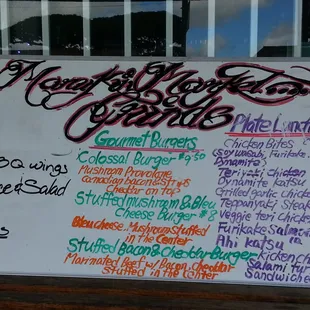 Market
Grinds
Gourmet Burgers
Colossal Burger $9.50
Mushroom Provalone
Canadian bacon & strips
Cheddar on top
Stuffed mushroom & Bleu
Cheese Burger $8
Bleu cheese. Mushroom stuffed
in the Center
Stuffed Bacon & Cheddar Burger
Marinated Beef w/ Bacon, cheddar
stuffed in the Center
BQ wings
& Salad
Plate Lunch
Chicken Bites
(soy wasabi, Furikake
Dynamite)
Teriyaki Chicken
Dynamite Katsu
Grilled garlic chicken
Teppanyaki Steak
Veggie teri chicken
Furikake salmon
Ahi katsu
Chicken
Salami
Sandwiche